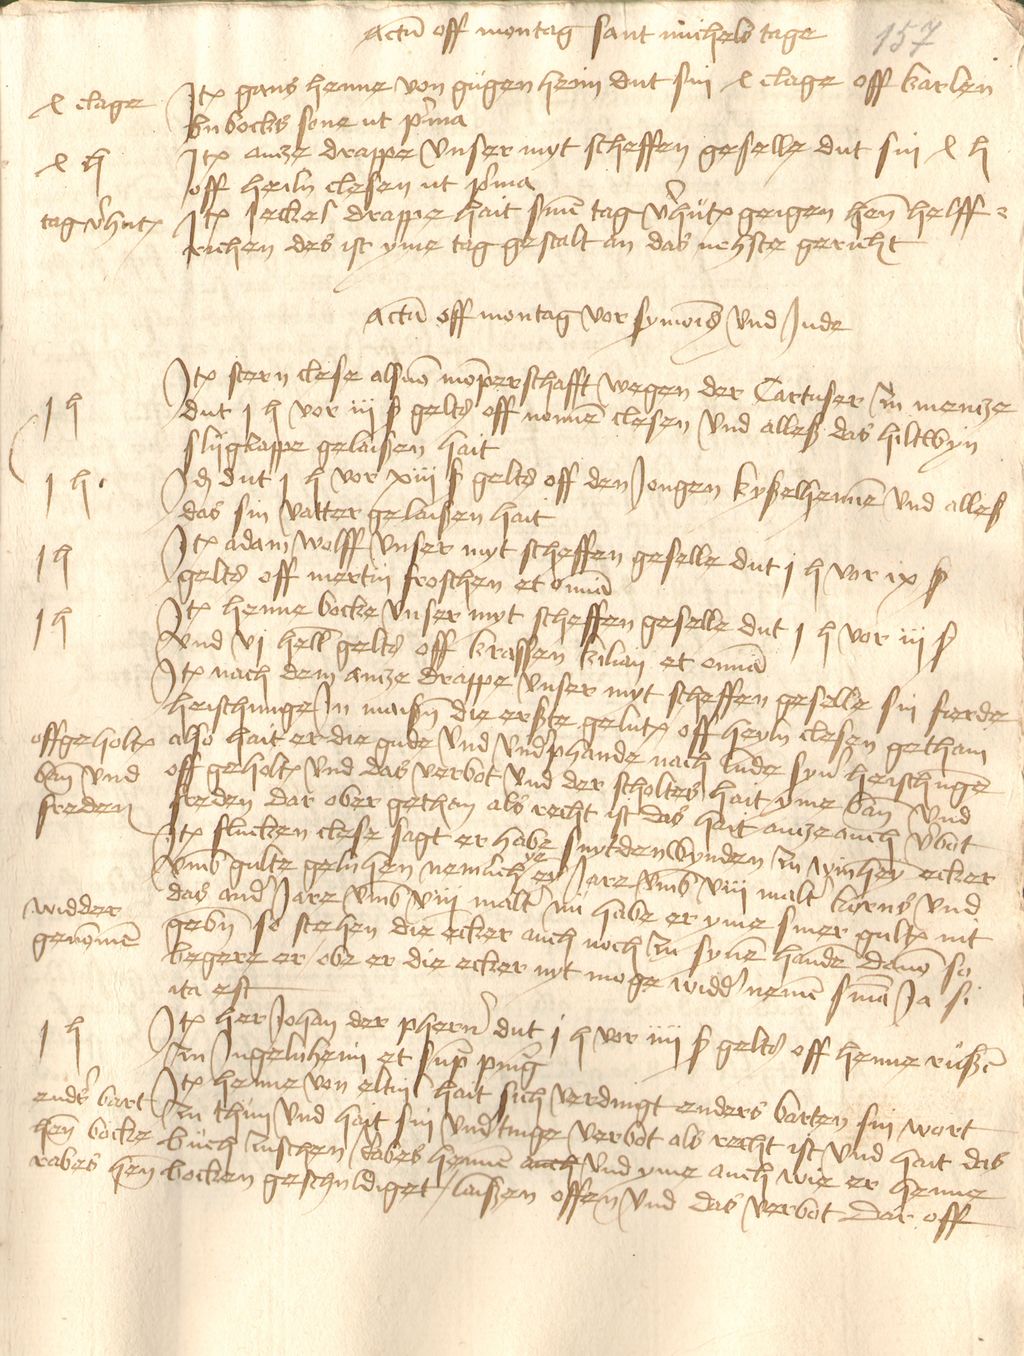 Actu off montag sant michels tage 157
x clage Itz gans henne von gugenheim dut sin x clage off karlen
snbocks sone ut prima
x h Itz antze drappe unser myt scheffen geselle dut sin x h
off heiln clesen ut prima
tag vhutz Itz Jeckel drappe hait sine tag vhutz geigen hen helff
richen des ist yme tag gestalt an das nehste gericht
Actu off montag vor symonis und Jude
Itz stern clese als momperschafft wegen der Cartuser zu mentze
j h dut j h vor iij ß gelts off nonne clesen und alleß das hiltwyn
slugkappe gelaißen hait
j h Id dut j h vor xiij ß gelts off den Jongen kyselhenne und alleß
das sin vatter gelaißen hait
j h Itz adam wolff unser myt scheffen geselle dut j h vor ix ß
gelts off mertin froschen et omnia
j h Itz henne bocke unser myt scheffen geselle dut j h vor iij ß
und vj hell gelts off krassen kilian et omnia
Itz nach dem antze drappe unser myt scheffen geselle sin fierde
heischunge In maißn die erßte gelutz off heyln clesen gethain
offgeholtz also hait er die gude und underphande nach lude syner heischunge
ban und off geholtz und das verbot und der scholtes hait yme ban und
freden freden dar ober gethan als recht ist das hait antze auch vbot
Itz flucken clese sagt er habe snytdenwynden zu wynhey ecker
umb gulte geluhen nemlich ye eyn Jare umb viij malter korns und
das ander Jare umb viij malter nu habe er yme siner gultz nit
widder gebn so stehen die ecker auch noch in syne hande dans so
genomen begere er obe er die ecker nyt moge widder nemen sma Ja si
ita est
j h Itz her Johan der pherner dut j h vor iiij ß gelts off henne rußen
zu Ingelnheim et sup pnig
Itz henne von eltin hait sich verdingt enders barten sin wort
enders bart zu thun und hait sin undtinge verbot als recht ist und hait das
hen bocke buch zuschen rabes henne und yme auch wie er henne
rabes hen bocken geschuldiget laißen offen und das verbot dar off